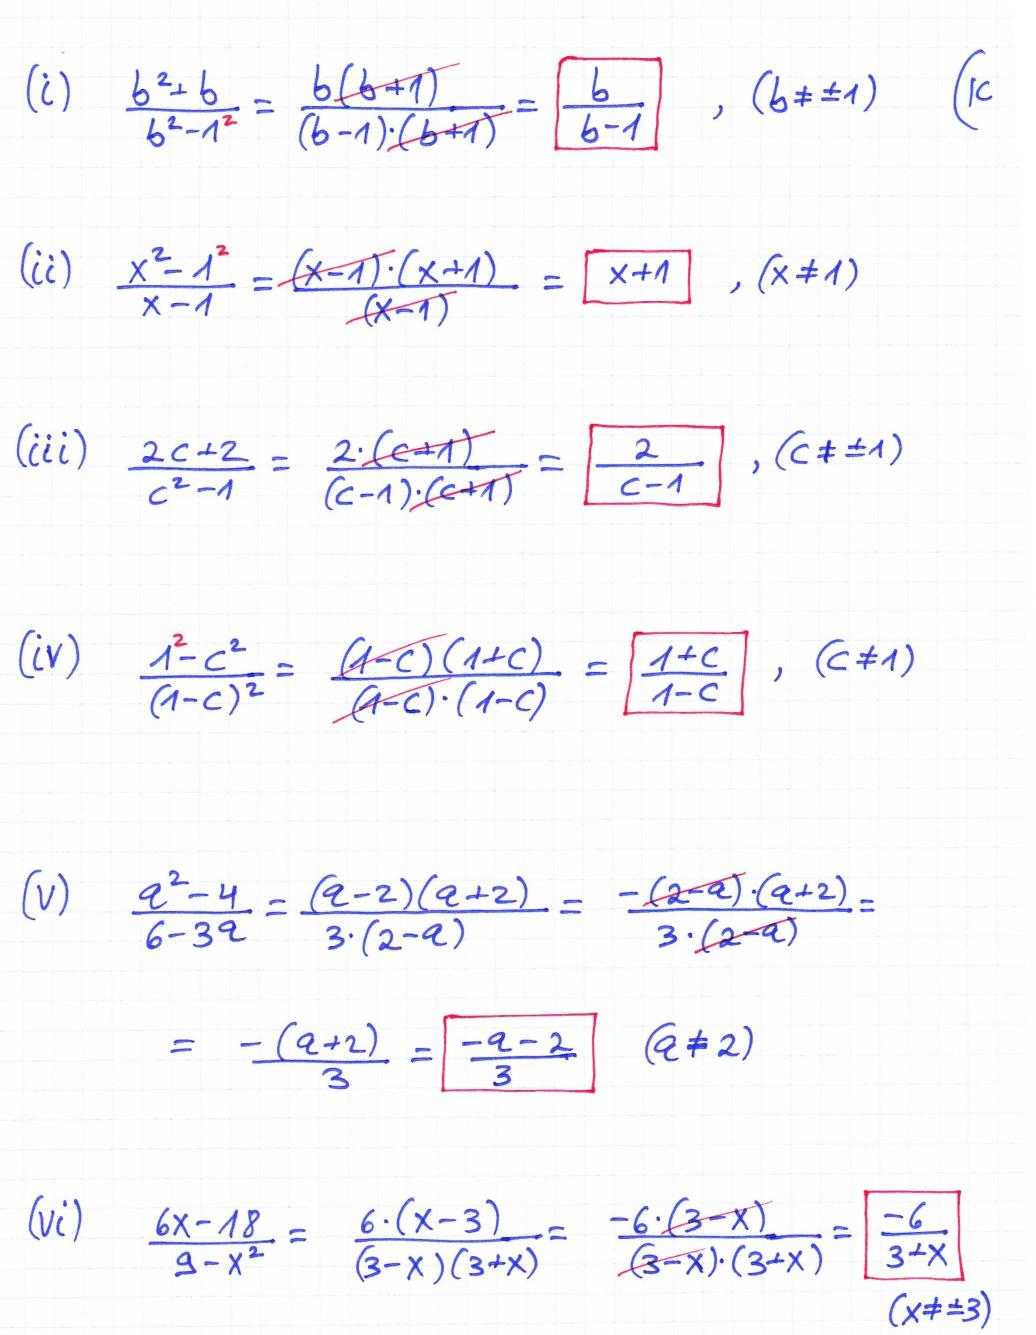 (i) (b²+b)/(b²-1²) = (b(b+1))/((b-1)·(b+1)) = b/(b-1) , (b≠±1)
(ii) (x²-1²)/(x-1) = ((x-1)·(x+1))/(x-1) = x+1 , (x≠1)
(iii) (2c+2)/(c²-1) = (2·(c+1))/((c-1)·(c+1)) = 2/(c-1) , (c≠±1)
(iv) (1²-c²)/(1-c)² = ((1-c)(1+c))/((1-c)·(1-c)) = (1+c)/(1-c) , (c≠1)
(v) (a²-4)/(6-3a) = ((a-2)(a+2))/(3·(2-a)) = (-(2-a)·(a+2))/(3·(2-a)) =
= (-(a+2))/3 = (-a-2)/3 (a≠2)
(vi) (6x-18)/(9-x²) = (6·(x-3))/((3-x)(3+x)) = (-6·(3-x))/((3-x)·(3+x)) = -6/(3+x)
(x≠±3)